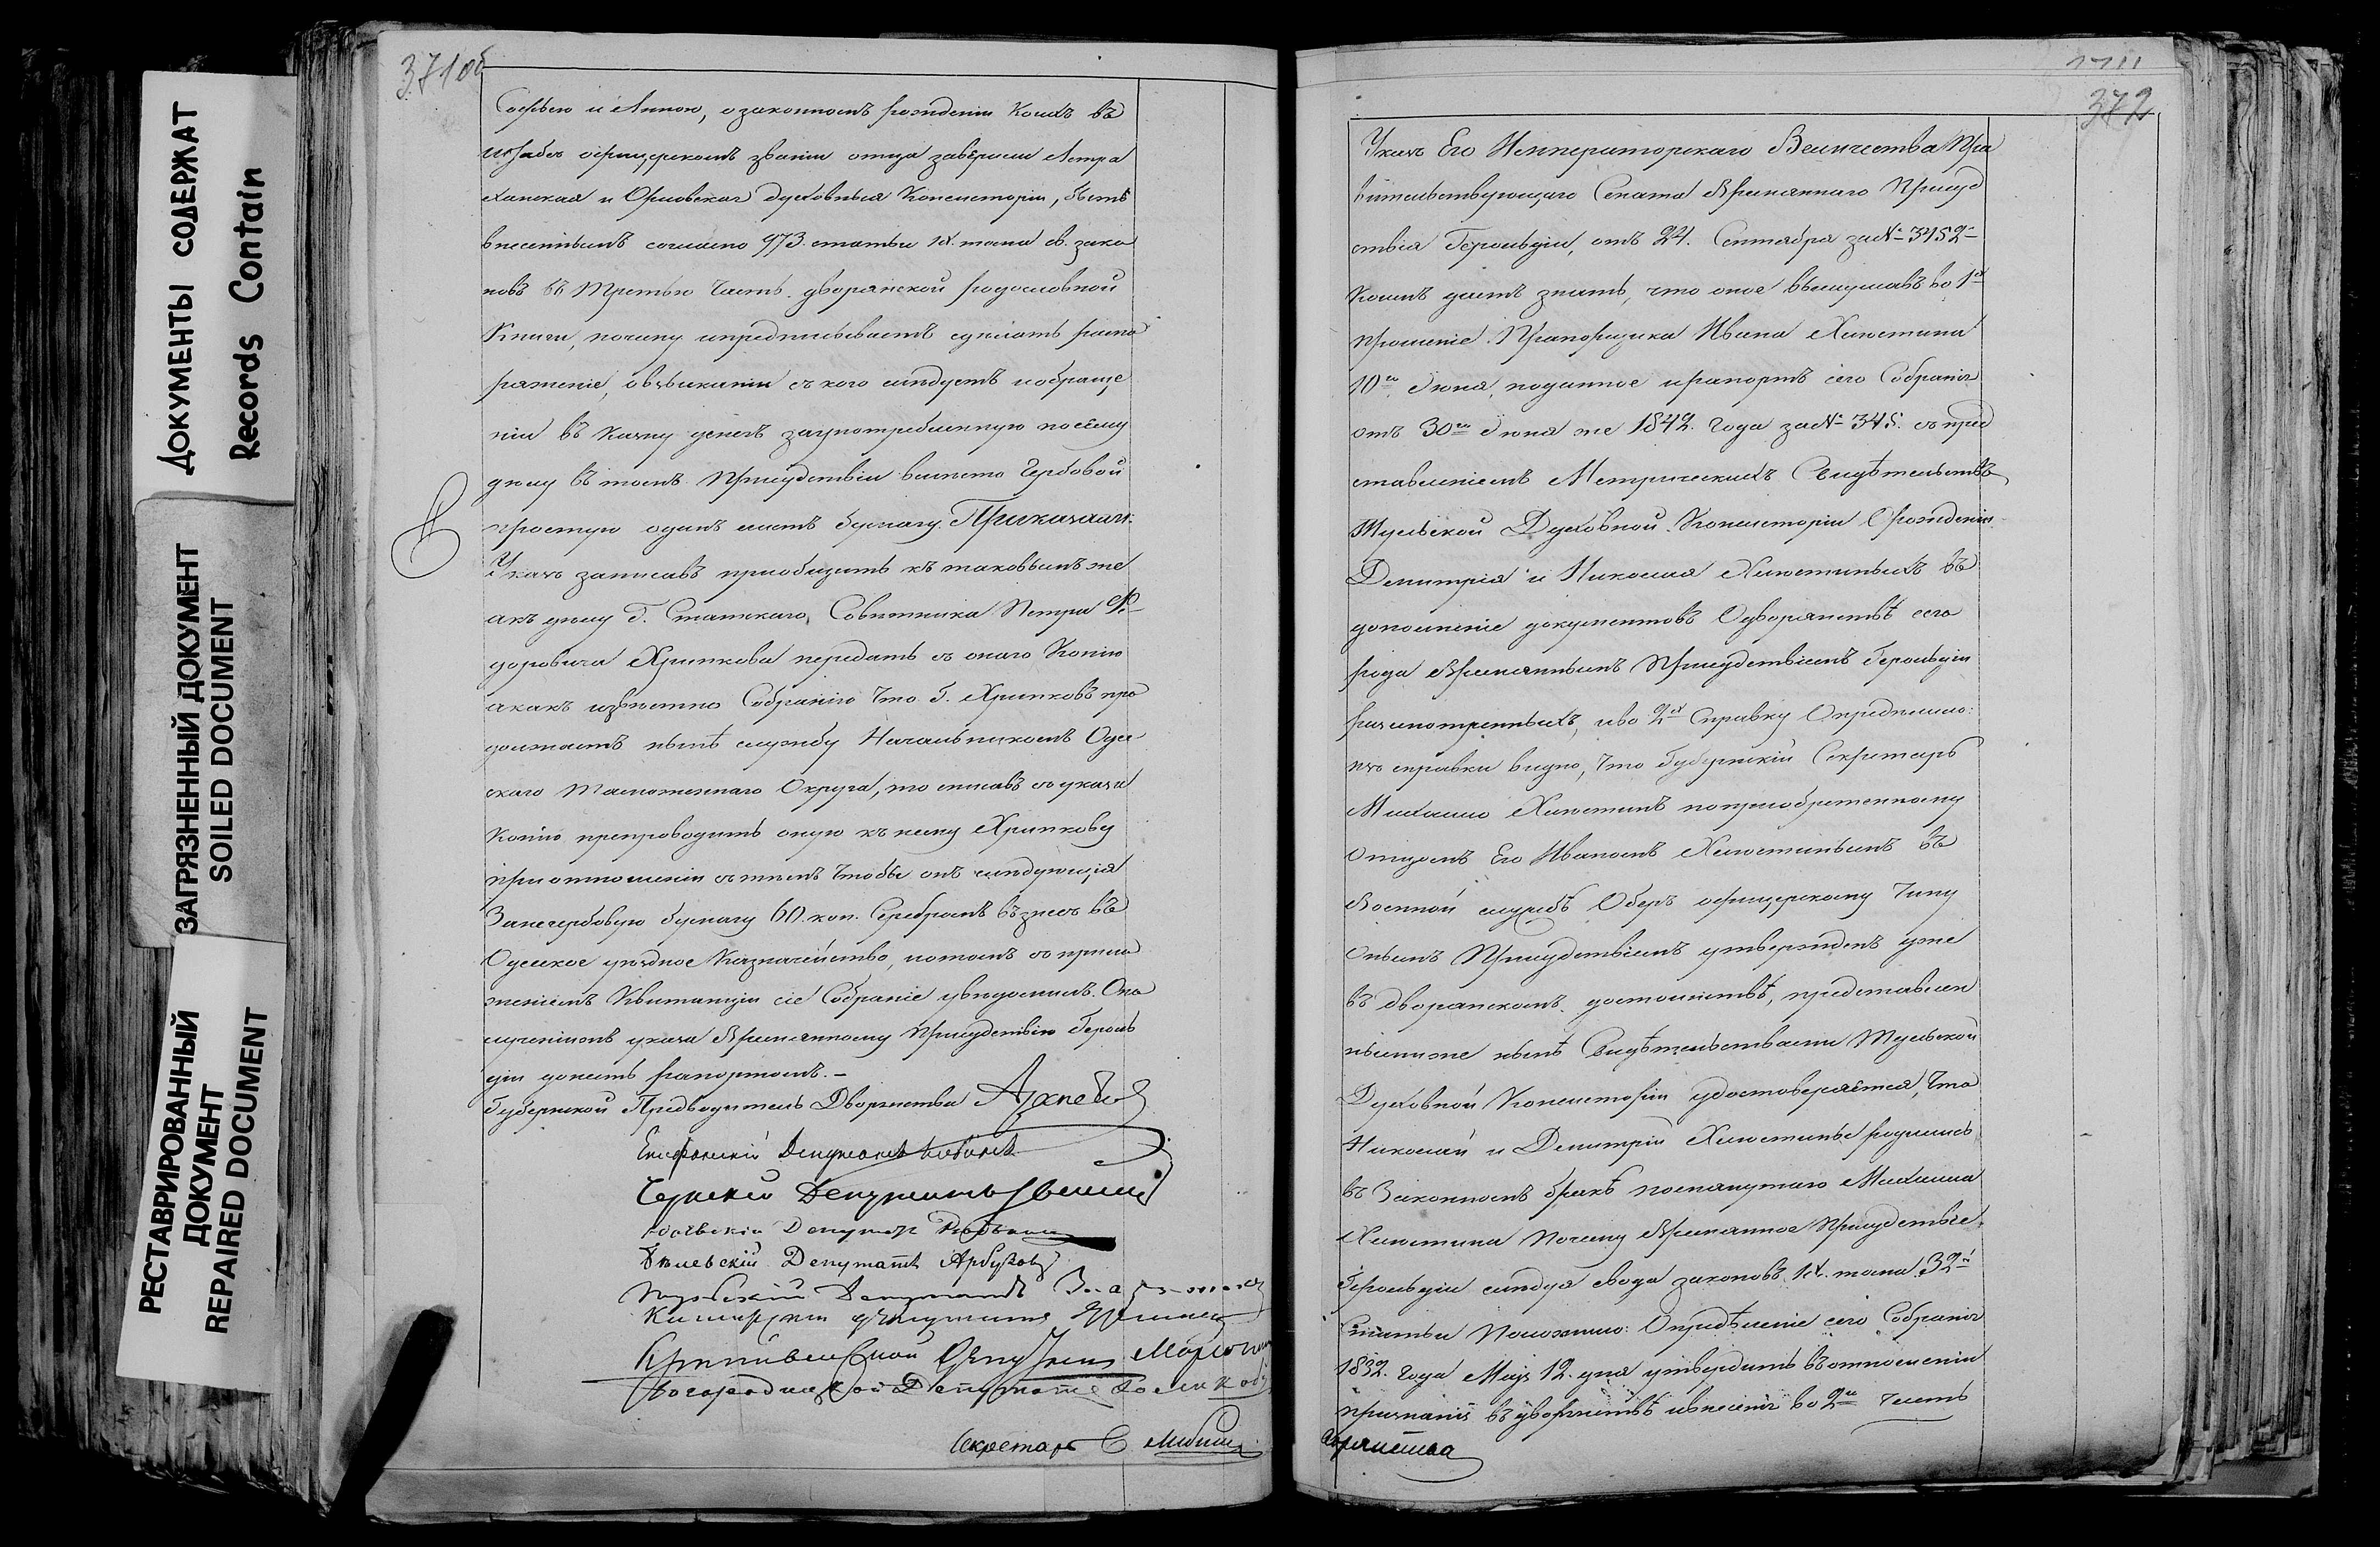 ДОКУМЕНТЫ СОДЕРЖАТ
Records Contain
ЗАГРЯЗНЕННЫЙ ДОКУМЕНТ
SOILED DOCUMENT
РЕСТАВРИРОВАННЫЙ
ДОКУМЕНТ
REPAIRED DOCUMENT
371об
Софьею и Анною, о законномъ рожденіи коихъ въ
штабъ офицерскомъ званіи отца завѣрили Астра
ханская и Орловская Духовныя Консисторіи, быть
внесеннымъ согласно 973. статьи IX тома св. зако
новъ въ Третью часть дворянской родословной
Книги, почему и предписываетъ сдѣлать распо
ряженіе, о взысканіи съ кого слѣдуетъ и обраще
ніи въ казну денегъ за употребленную по сему
дѣлу въ томъ Присудствіи вмѣсто Гербовой
простую одинъ листъ бумагу. Приказали:
Указъ записавъ пріобщить къ таковымъ же
а къ дѣлу Г. Статскаго Совѣтника Петра Ѳе
доровича Хрипкова передать съ онаго Копію
а какъ извѣстно Собранію что Г. Хрипковъ про
должаетъ нынѣ службу Начальникомъ Одес
скаго Таможеннаго Округа, то списавъ съ указа
Копію препроводить оную къ нему Хрипкову
при отношеніи съ тѣмъ чтобы онъ слѣдующія
За негербовую бумагу 60. коп. Серебромъ взнесъ въ
Одесское уѣздное Казначейство, и о томъ съ прило
женіемъ Квитанціи сіе Собраніе увѣдомилъ. О по
лученіи онъ указа Временному Присудствію Героль
діи донесть рапортомъ. –
Губернской Предводитель Дворянства
Епифанскій Депутатъ
Чернскій Депутатъ
Депутатъ
Бѣлевскій Депутатъ Арбузовъ
Депутатъ
Каширскій депутатъ
Крапивенской Депутатъ
Богородицкой Депутатъ
Секретарь
372
Указъ Его Императорскаго Величества Пра
вительствующаго Сената Временнаго Присуд
ствія Герольдіи, отъ 24. Сентября за № 3452
Коимъ даетъ знать, что оное выслушавъ во 1х
прошеніе Прапорщика Ивана Хлюстина
10го Іюня, поданное и рапортъ сего Собранія
отъ 30го Іюня же 1842. года за № 345. съ пред
ставленіемъ Метрическихъ Свидѣтельствъ
Тульской Духовной Консисторіи о рожденіи
Демитрія и Николая Хлюстиныхъ въ
дополненіе документовъ о дворянствѣ сего
рода Временнымъ Присудствіемъ Герольдіи
разсмотренныхъ, и во 2х Справку Опредѣлило:
изъ справки видно, что Губернскій Секретарь
Михайло Хлюстинъ по пріобретенному
отцомъ Его Иваномъ Хлюстинымъ въ
Военной службѣ Оберъ офицерскому Чину
онымъ Присудствіемъ утвержденъ уже
въ дворянскомъ достоинствѣ, представлен
ными же нынѣ Свидѣтельствами Тульской
Духовной Консисторіи удостоверяется, что
Николай и Демитрій Хлюстины родились
въ Законномъ бракѣ помянутаго Михаила
Хлюстина Почему Временное Присудствіе
Герольдіи слѣдуя свода законовъ IX. тома 32й
Статьи Положило: Опредѣленіе сего Собранія
1832. года Маія 12. дня утвердить въ отношеніи
признанія въ дворянствѣ и внесенія во 2ю часть